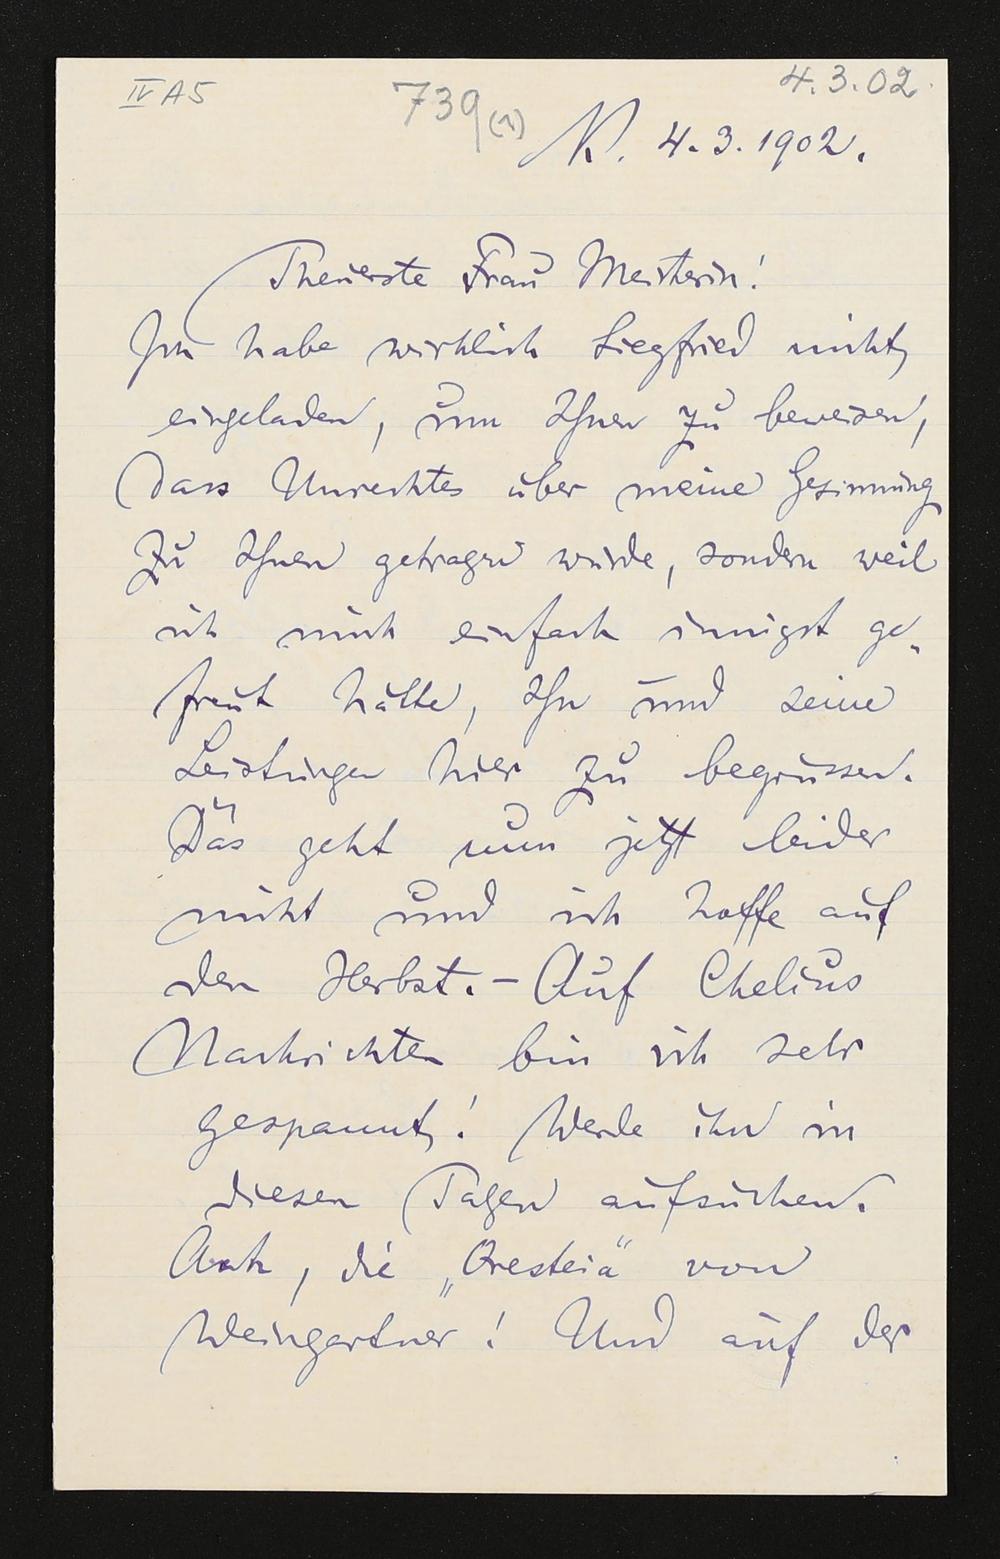 IV A5
739 (1)
4.3.02.
N. 4.3.1902.
Theuerste Frau Meisterin!
Ich habe wirklich Siegfried nicht
eingeladen, um Ihnen zu beweisen,
dass Unrechtes über meine Gesinnung
zu Ihnen getragen wurde, sondern weil
ich mich einfach innigst ge-
freut hätte, Ihn und seine
Leistungen hier zu begrüssen.
Das geht nun jetzt leider
nicht und ich hoffe auf
den Herbst. – Auf Chelius
Nachrichten bin ich sehr
gespannt! Werde ihn in
diesen Tagen aufsuchen.
Ach, die „Oresteia" von
Weingartner! Und auf der